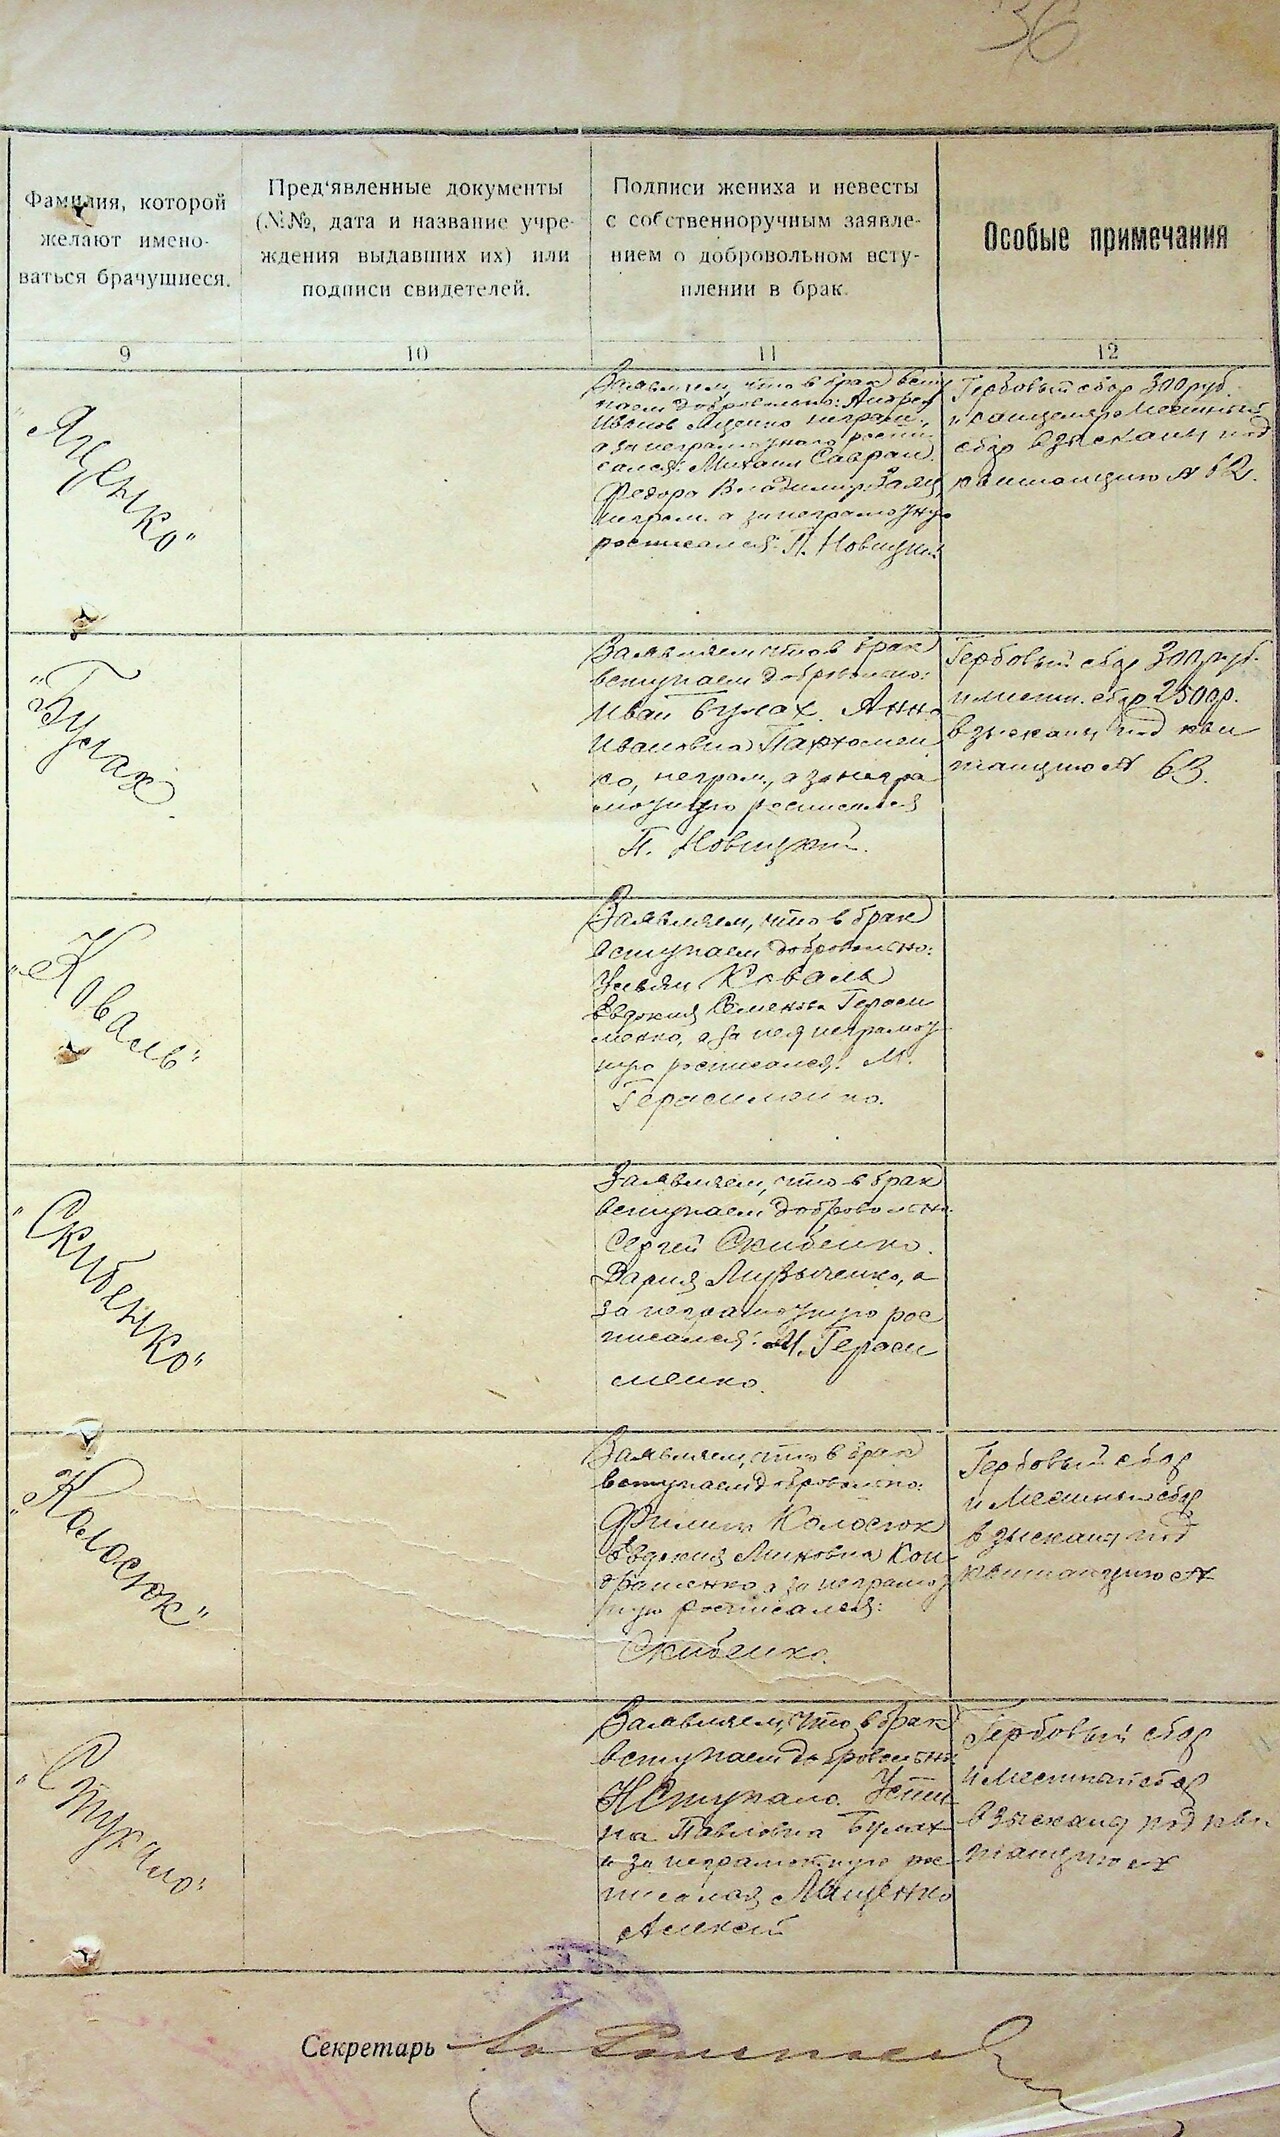 36
Фамилия, которой
желают имено-
ваться брачущиеся.
Пред'явленные документы
(№№, дата и название учре-
ждения выдавших их) или
подписи свидетелей.
Подписи жениха и невесты
с собственноручным заявле-
нием о добровольном всту-
плении в брак.
Особые примечания
9
10
11
12
"Яценко"
Заявляем, что в брак всту
паем добровольно: Андрей
Иванов Яценко неграм.,
а за неграмотного роспи
сался: Михаил Савран.
Федора Владимир
неграм. а за неграмотную
росписался: П. Новицкий
Гербовый сбор 300 руб.
и местный
сбор взысканы под
квитанцию № 62.
"Булах"
Заявляем, что в брак
вступаем добровольно:
Иван Булах. Анна
Ивановна Пархомен
ко, неграм., а за негра
мотную росписался
П. Новицкий.
Гербовый сбор 300 руб.
и местн. сбор 250 р.
взысканы под кви
танцию № 63.
"Коваль"
Заявляем, что в брак
вступаем добровольно:
Ульян Коваль
Евдокия Семенова Гераси
менко, а за нея неграмот
ную росписался: М.
Герасименко.
"Скибенко"
Заявляем, что в брак
вступаем добровольно
Сергей Скибенко.
Дария Музыченко, а
за неграмотную рос
писался: М. Гераси
менко.
"Колосюк"
Заявляем, что в брак
вступаем добровольно:
Филипп Колосюк
Евдокия Миновна Кон
драшенко, а за неграмот
ную росписался:
Скибенко.
Гербовый сбор
и местный сбор
взысканы под
квитанцию №
"Стукало"
Заявляем, что в брак
вступаем добровольно
Н Стукало. Усти
на Павловна Булах
а за неграмотную рос
писался Яценко
Алексей
Гербовый сбор
и местный сбор
взысканы под кви
танцию №
Секретарь